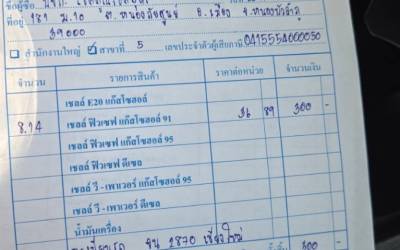 ที่อยู่ 181 ม.10 ต. หนองภัยศูนย์ อ. เมือง จ. หนองบัวลำภู
39000
สำนักงานใหญ่ ✓ สาขาที่ 5 เลขประจำตัวผู้เสียภาษี 0415554000050
จำนวน รายการสินค้า ราคาต่อหน่วย จำนวนเงิน
เชลล์ E20 แก๊สโซฮอล์
8.14 เชลล์ ฟิวเซฟ แก๊สโซฮอล์ 91 36 89 300 -
เชลล์ ฟิวเซฟ แก๊สโซฮอล์ 95
เชลล์ ฟิวเซฟ ดีเซล
เชลล์ วี - เพาเวอร์ แก๊สโซฮอล์ 95
เชลล์ วี - เพาเวอร์ ดีเซล
น้ำมันเครื่อง
ขน 2870 เชียงใหม่
300 -